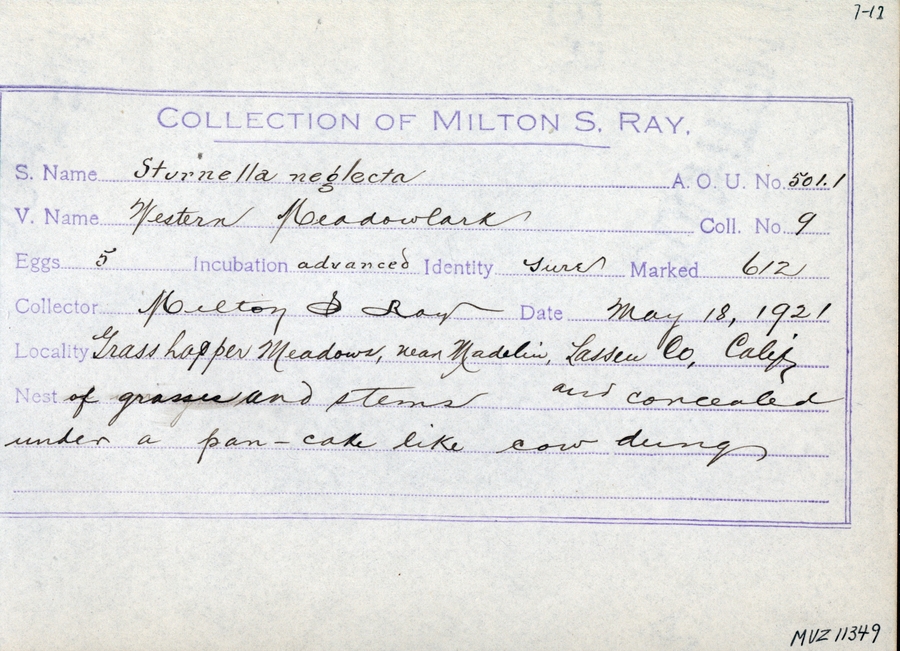 7-12
COLLECTION OF MILTON S. RAY.
S. Name Sturnella neglecta A. O. U. No. 501.1
V. Name Western Meadowlark Coll. No. 9
Eggs 5 Incubation advanced Identity sure Marked 612
Collector Milton S Ray Date May 18, 1921
Locality Grasshopper Meadows, near Madelin, Lassen Co, Calif
Nest of grasses and stems and concealed
under a pan-cake like cow dung
MVZ 11349